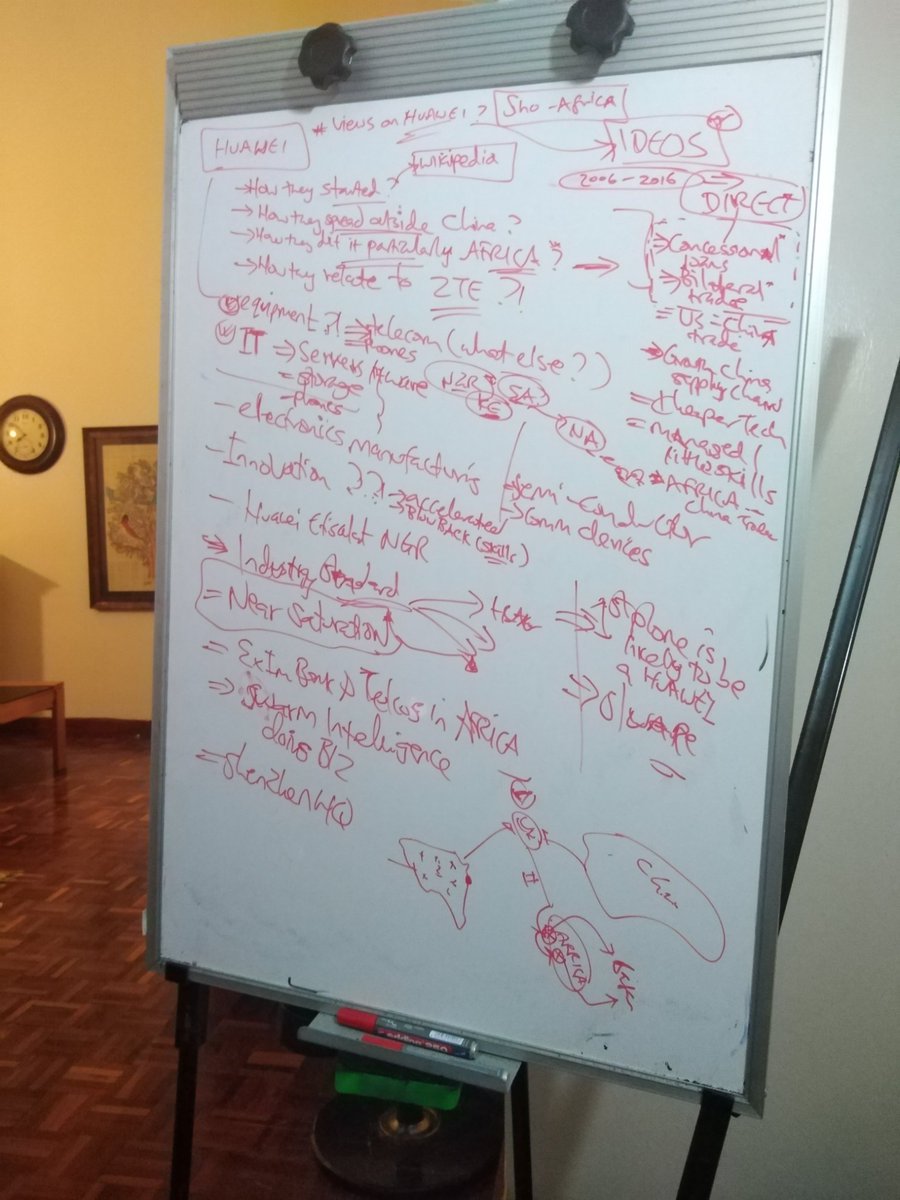 * Views on HUAWEI ? Sino-Africa
HUAWEI
IDEOS
Wikipedia
2006 - 2016
DIRECT
→ How they started ?
→ How they spread outside China ?
→ How they did it particularly AFRICA ?
→ How they relate to ZTE ?!
Concessional loans
Bilateral trade
= US = China trade
→ Grow china supply chain
= Cheaper Tech
= managed little skills
AFRICA - China Trade
equipment ?! ⇒ telecom (what else ??)
phones
IT ⇒ Servers
= storage
- phones
NGR
SA
KE
NA
- electronics manufacturing
- Innovation ??! → accelerated
(skills)
→ Semi-Conductor
→ Comm devices
- Huawei Etisalat NGR
⇒ Industry Standard
= Near Saturation
⇒ 1st phone is likely to be a HUAWEI
= Exim Bank & Telcos in AFRICA doing BIZ
⇒ Swarm Intelligence
= Shenzhen HQ
AFRICA
edding